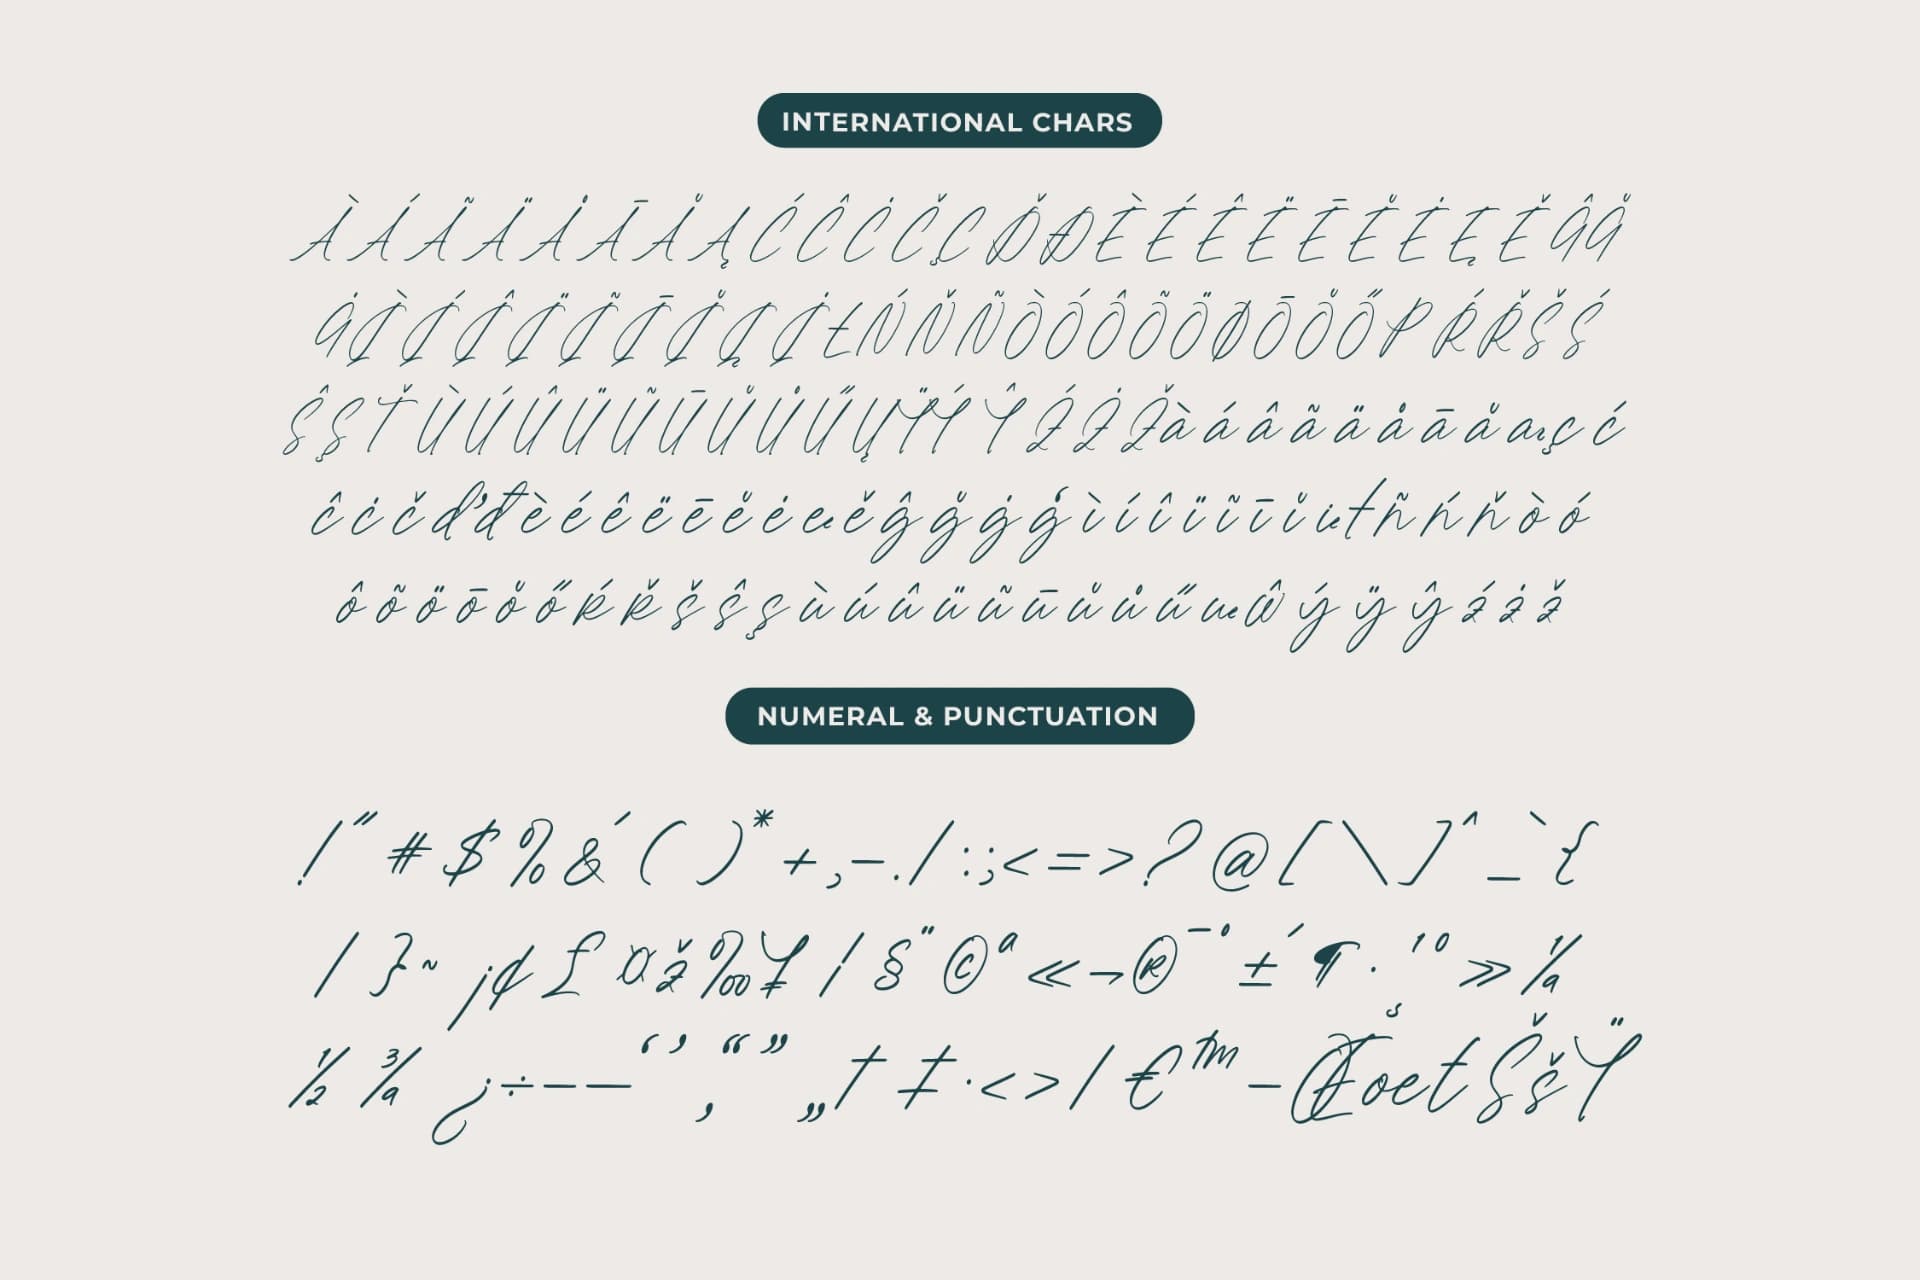 INTERNATIONAL CHARS
À Á Ã Ä Å Ā Ă Ą Ć Ĉ Ċ Č Ç Ď Đ È É Ê Ë Ē Ĕ Ė Ę Ě Ĝ Ğ
Ġ Ì Í Î Ï Ĩ Ī Ĭ Į İ Ł Ń Ň Ñ Ò Ó Ô Õ Ö Ø Ō Ŏ Ő P Ŕ Ř Š Ś
Ŝ Ş Ť Ù Ú Û Ü Ũ Ū Ŭ Ů Ű Ų Ÿ Ý Ŷ Ź Ż Ž à á â ã ä å ā ă ą ç ć
ĉ ċ č ď đ è é ê ë ē ĕ ė ę ě ĝ ğ ġ ģ ì í î ï ĩ ī ĭ į ł ñ ń ň ò ó
ô õ ö ō ŏ ő ŕ ř š ŝ ş ù ú û ü ũ ū ŭ ů ű ų ŵ ý ÿ ŷ ź ż ž
NUMERAL & PUNCTUATION
! " # $ % & ´ ( ) * + , – . / : ; < = > ? @ [ \ ] ^ _ ` {
| } ~ ¡ ¢ £ ¤ ž ‰ ¥ ¦ § ¨ © ª « ¬ ® ¯ ° ± ´ ¶ · ¸ ¹ º » ¼
½ ¾ ¿ ÷ – — ‘ ’ ‚ “ ” „ † ‡ · < > / € ™ − Œ œ ŧ Š š Ÿ